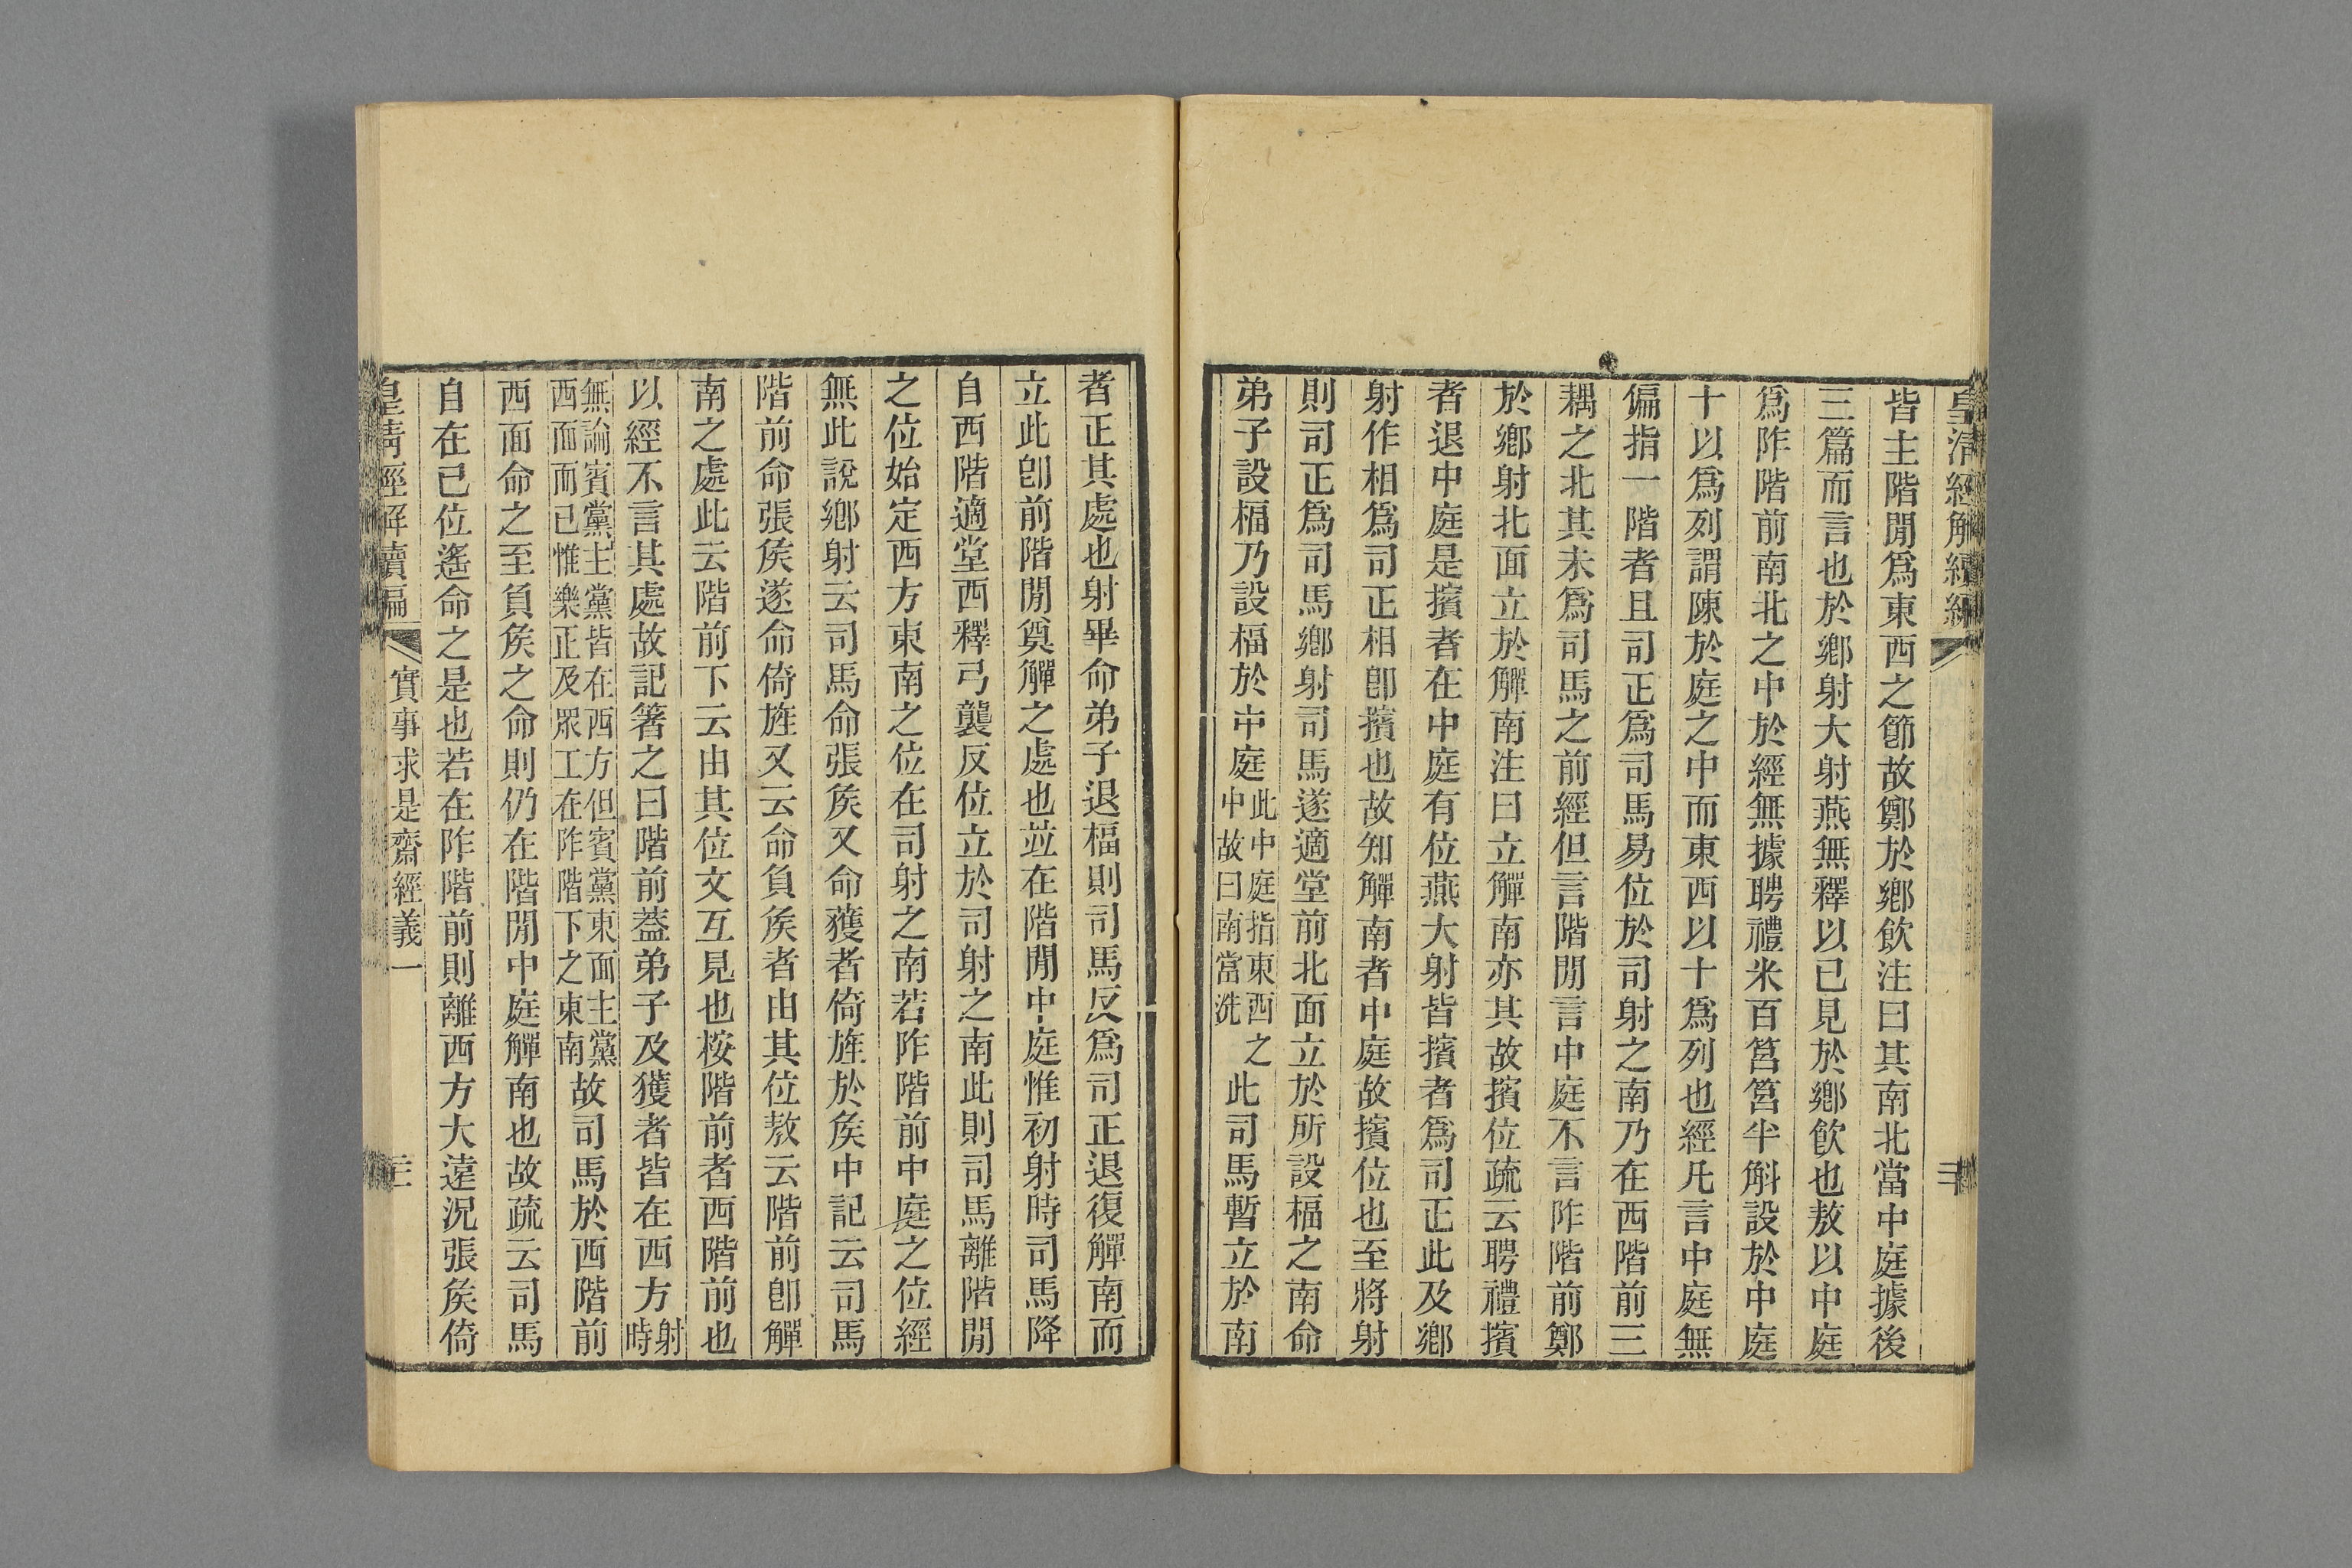 皇清經解續編
皆主階閒爲東西之節故鄭於鄉飲注曰其南北當中庭據後
三篇而言也於鄉射大射燕無釋以已見於鄉飮也敖以中庭
爲阼階前南北之中於經無據聘禮米百筥筥半斛設於中庭
十以爲列謂陳於庭之中而東西以十爲列也經凡言中庭無
偏指一階者且司正爲司馬易位於司射之南乃在西階前三
耦之北其未爲司馬之前經但言階閒言中庭不言阼階前鄭
於鄉射北面立於觶南注曰立觶南亦其故擯位疏云聘禮擯
者退中庭是擯者在中庭有位燕大射皆擯者爲司正此及鄉
射作相爲司正相卽擯也故知觶南者中庭故擯位也至將射
則司正爲司馬鄉射司馬遂適堂前北面立於所設楅之南命
弟子設楅乃設楅於中庭此中庭指東西之中故曰南當洗此司馬暫立於南
者正其處也射畢命弟子退楅則司馬反爲司正退復觶南而
立此卽前階閒奠觶之處也並在階閒中庭惟初射時司馬降
自西階適堂西釋弓襲反位立於司射之南此則司馬離階閒
之位始定西方東南之位在司射之南若阼階前中庭之位經
無此說鄉射云司馬命張矦又命獲者倚旌於矦中記云司馬
階前命張矦遂命倚旌又云命負矦者由其位敖云階前卽觶
南之處此云階前下云由其位文互見也桉階前者西階前也
以經不言其處故記箸之曰階前葢弟子及獲者皆在西方射時
無論賓黨主黨皆在西方但賓黨東面主黨西面而已惟樂正及眾工在阼階下之東南故司馬於西階前
西面命之至負矦之命則仍在階閒中庭觶南也故疏云司馬
自在已位遙命之是也若在阼階前則離西方大遠況張矦倚
皇清經解續編 實事求是齋經義一 三